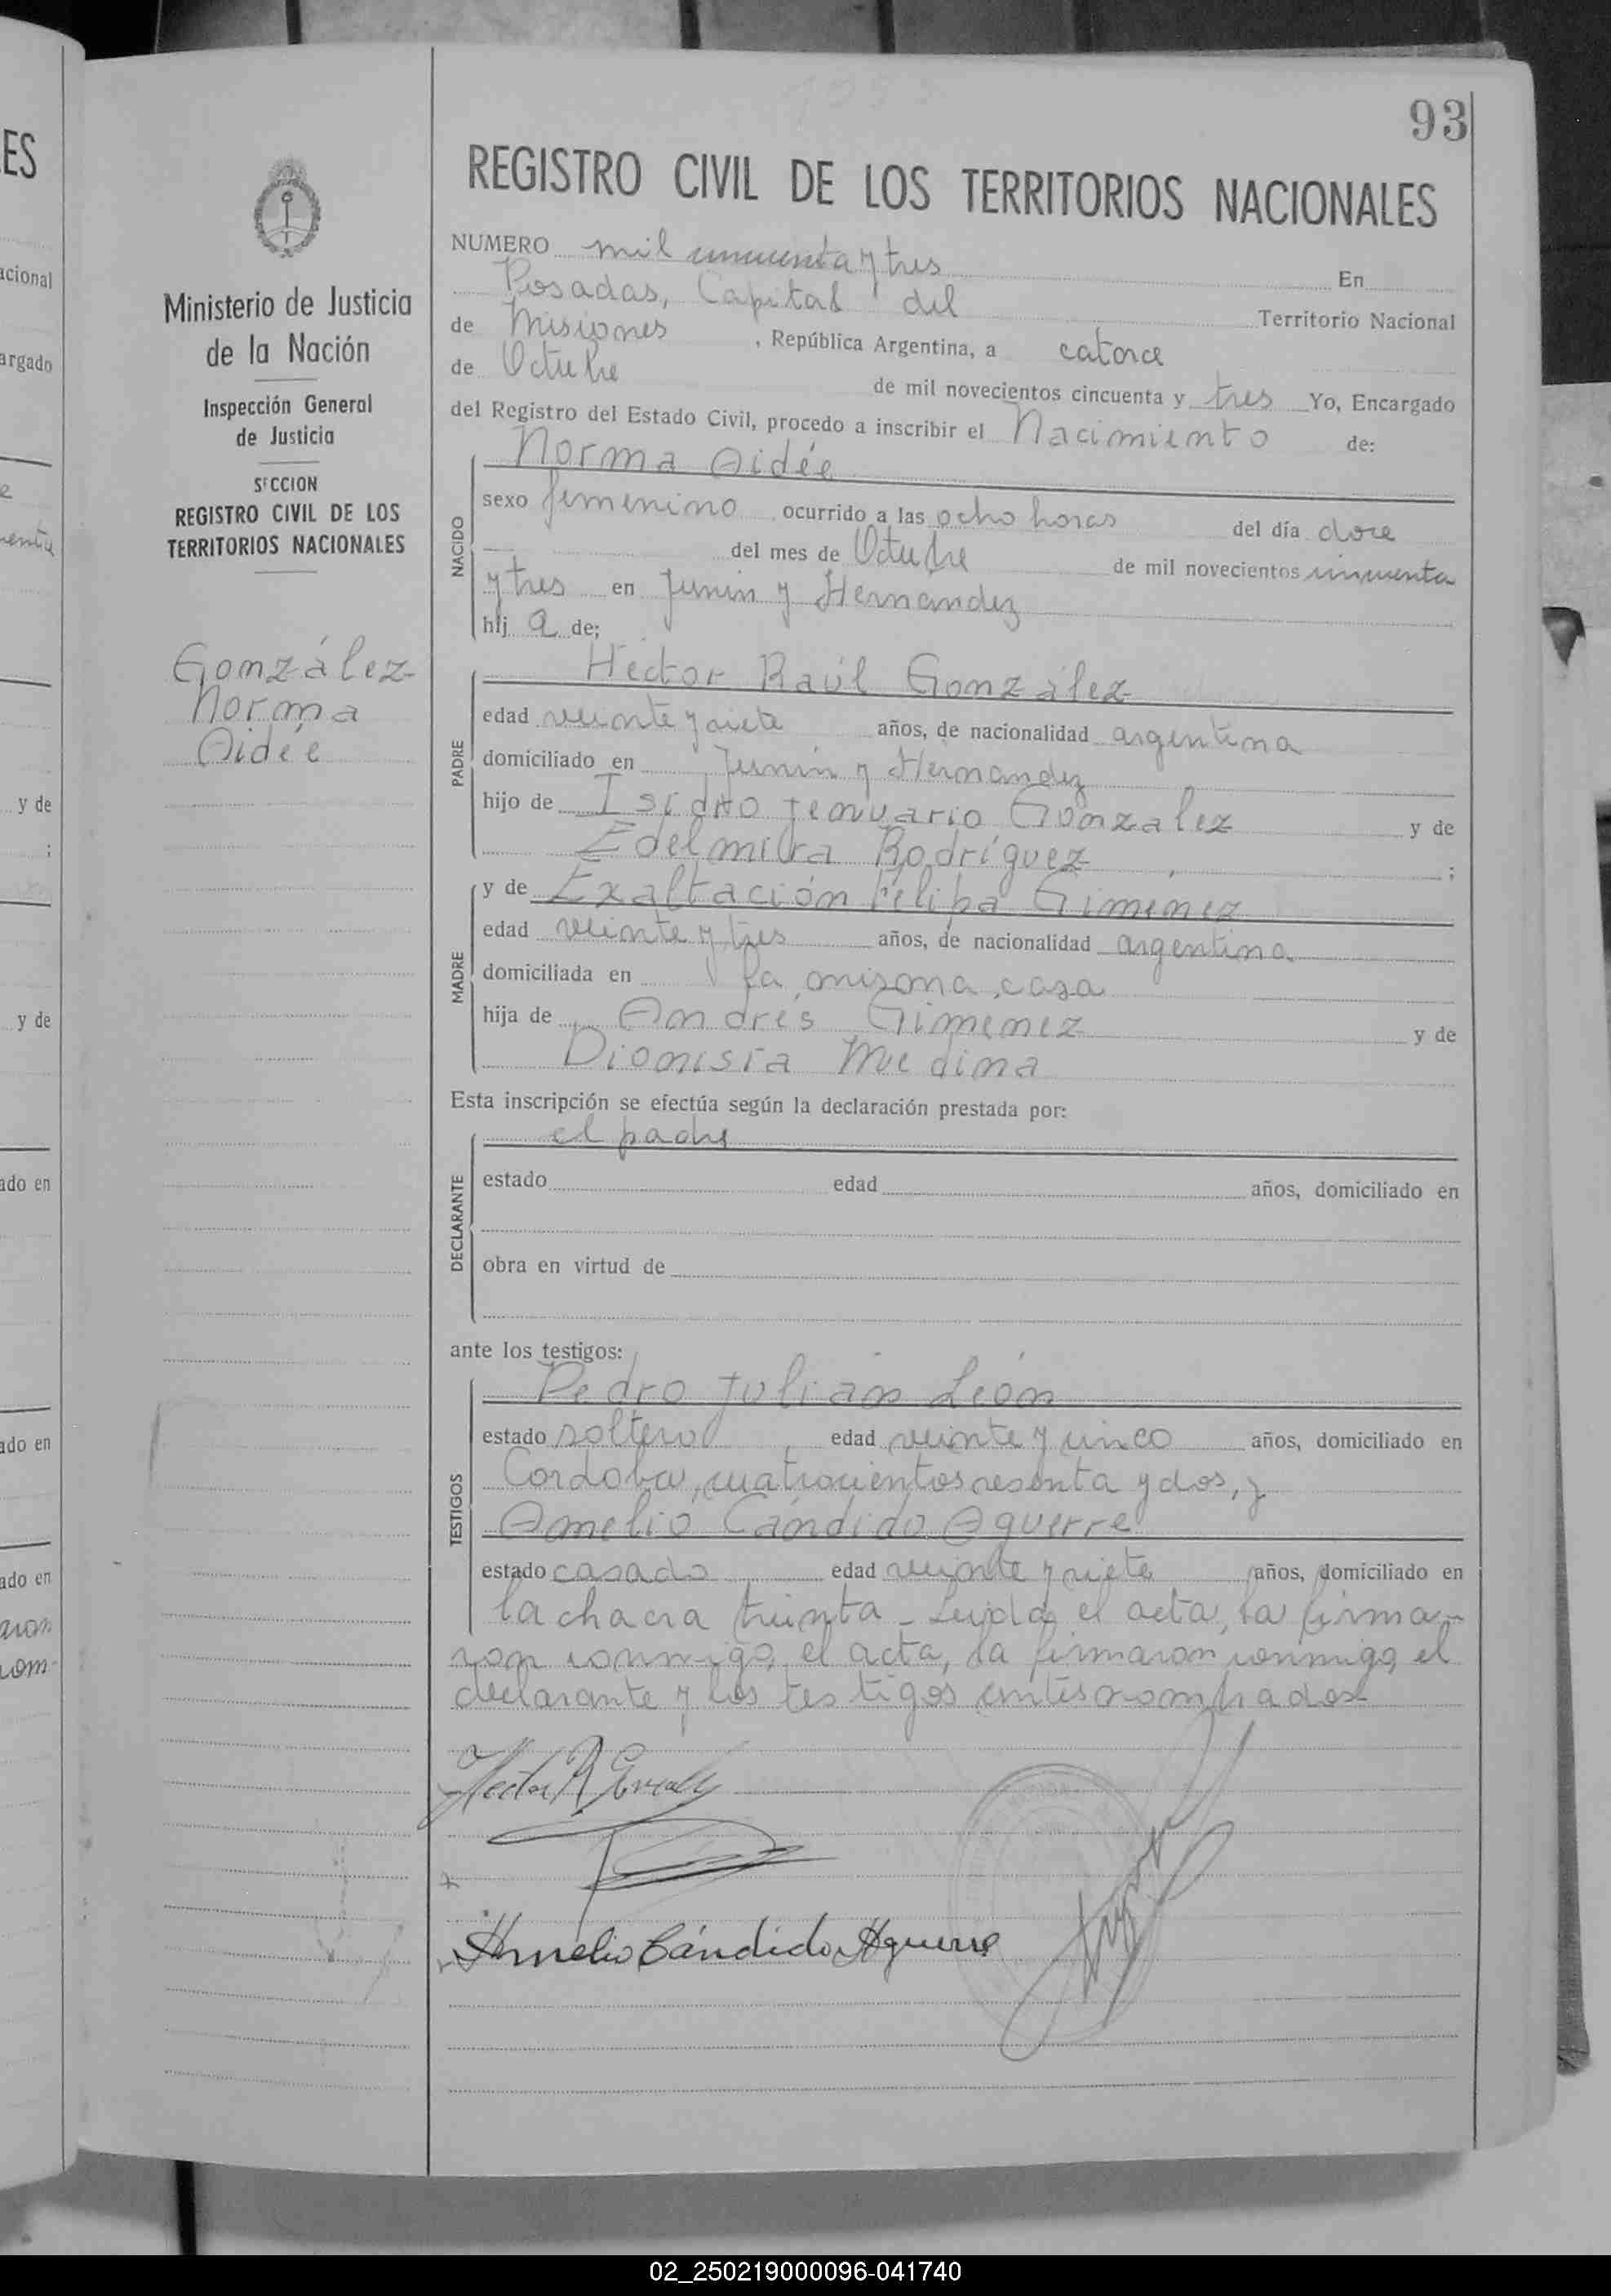 93
REGISTRO CIVIL DE LOS TERRITORIOS NACIONALES
Ministerio de Justicia
de la Nación
Inspección General
de Justicia
SECCION
REGISTRO CIVIL DE LOS
TERRITORIOS NACIONALES
González
Norma
Aidée
NUMERO mil cincuenta y tres En
Posadas, Capital del Territorio Nacional
de Misiones, República Argentina, a catorce
de Octubre de mil novecientos cincuenta y tres Yo, Encargado
del Registro del Estado Civil, procedo a inscribir el Nacimiento de:
NACIDO
Norma Aidée
sexo femenino ocurrido a las ocho horas del día doce
del mes de Octubre de mil novecientos cincuenta
y tres en Junin y Hernández
hij a de;
PADRE
Héctor Raúl González
edad veinte y siete años, de nacionalidad argentina
domiciliado en Junin y Hernandez
hijo de Isidro Jenuario González y de
Edelmira Rodríguez ;
MADRE
y de Exaltación Félipa Gimenez
edad veinte y tres años, de nacionalidad argentina
domiciliada en la misma casa
hija de Andrés Gimenez y de
Dionisia Medina
Esta inscripción se efectúa según la declaración prestada por:
DECLARANTE
el padre
estado edad años, domiciliado en
obra en virtud de
ante los testigos:
TESTIGOS
Pedro Julian León
estado soltero edad veinte y cinco años, domiciliado en
Cordoba, cuatrocientos sesenta y dos, y
Amelio Cándido Aguerre
estado casado edad veinte y siete años, domiciliado en
la chacra treinta - Leyda el acta, la firma-
ron conmigo, el acta, la firmaron conmigo, el
declarante y los testigos antes nombrados
Amelio Cándido Aguerre
ES
acional
argado
y de
;
y de
ado en
ado en
ado en
02_250219000096-041740